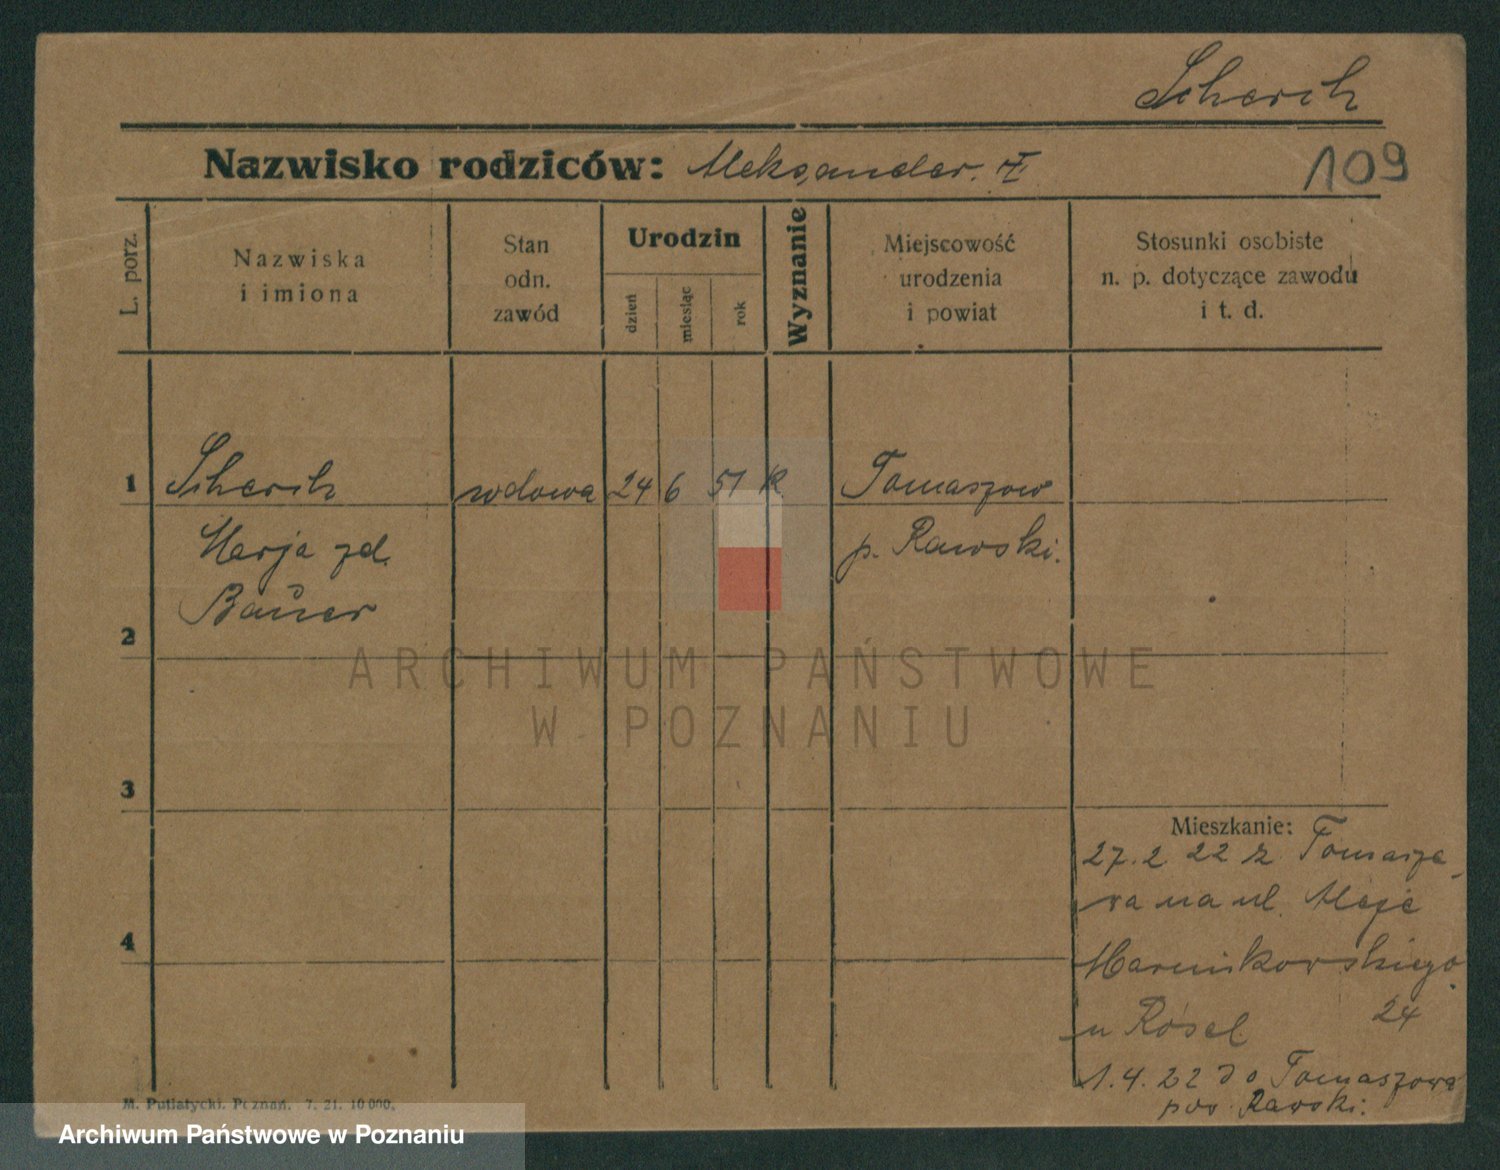 Scherch
Nazwisko rodziców: Aleksander.
109
L. porz.
Nazwiska
i imiona
Stan
odn.
zawód
Urodzin
dzień
miesiąc
rok
Wyznanie
Miejscowość
urodzenia
i powiat
Stosunki osobiste
n. p. dotyczące zawodu
i t. d.
1 Scherch wdowa 24 6 51 K. Tomaszow
Marja zd. p. Rawski.
Bauer
2
3
4
Mieszkanie:
27.2 22 z Tomasze-
wa na ul. Aleje
Marcinkowskiego
u Rosel 24
1.4.22 do Tomaszowa
pow Rawski.
M. Putiatycki. Poznań. 7. 21. 10 000.
ARCHIWUM PAŃSTWOWE
W POZNANIU
Archiwum Państwowe w Poznaniu